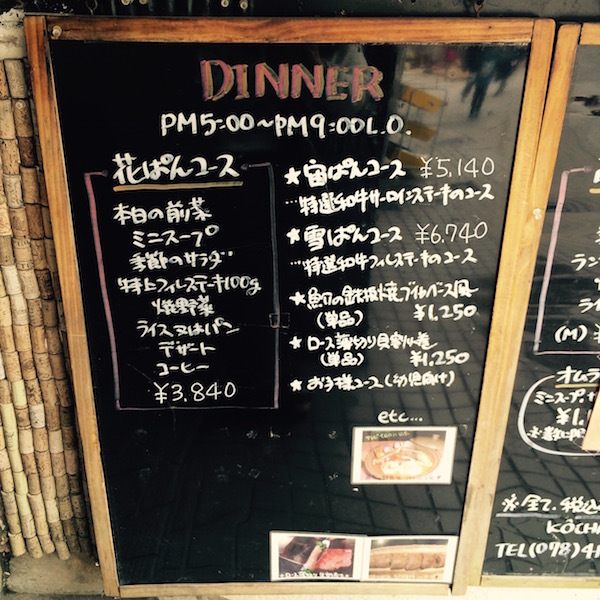 DINNER
PM5:00〜PM9:00L.O.
花ぱんコース
本日の前菜
ミニスープ
季節のサラダ
特上フィレステーキ100g
焼野菜
ライス又はパン
デザート
コーヒー
¥3,840
★宙ぱんコース ¥5,140
…特選和牛サーロインステーキのコース
★雪ぱんコース ¥6,740
…特選和牛フィレステーキのコース
★魚介の鉄板焼ブイヤベース風
(単品) ¥1,250
★ロース薄切り
(単品) ¥1,250
★お子様コース(幼児向け)
etc...
ラン
ライ
(M)
オムラ
ミニスープ、サ
¥1,
※全て、税込
KŌCHA
TEL(078)41